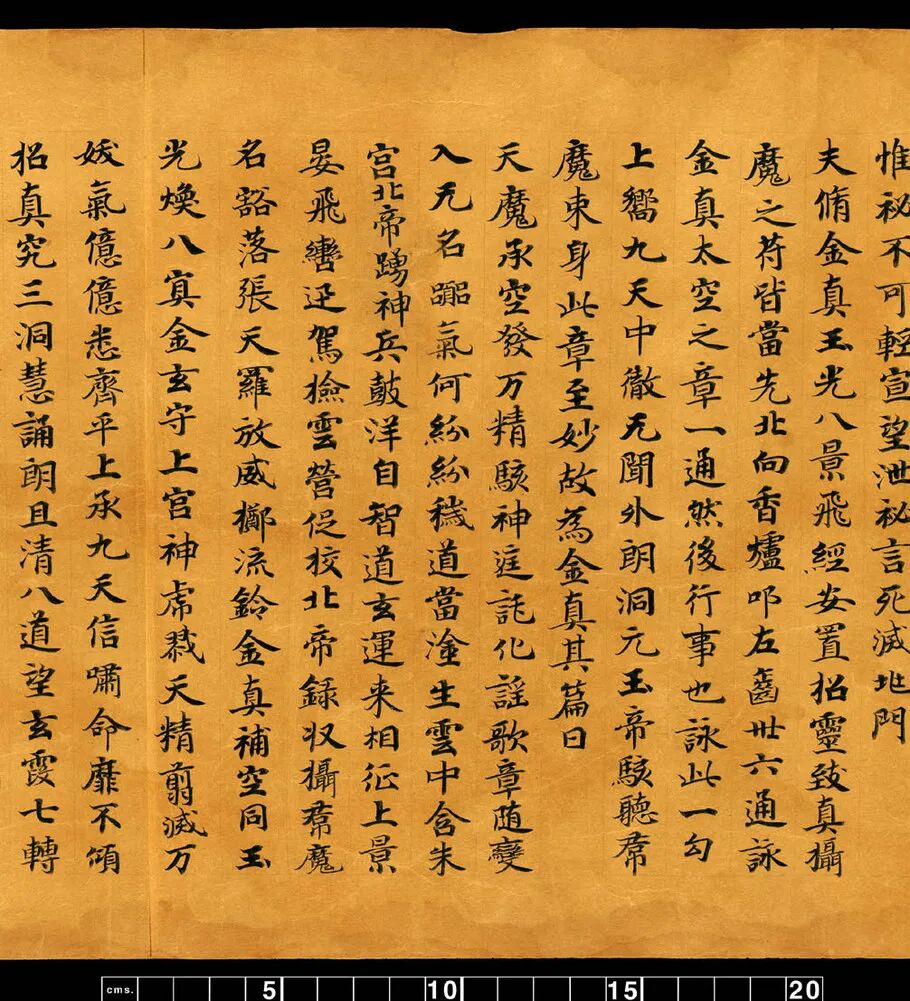 惟秘不可輕宣望泄秘言死滅地門
夫脩金真玉光八景飛經安置招靈致真攝
魔之苻皆當先北向香爐叩左齒卅六通詠
金真太空之章一通然後行事也詠此一句
上嚮九天中徹无聞外朗洞元玉帝駭聽群
魔束身此章至妙故為金真其篇曰
天魔承空發万精駭神廷託化謡歌章随變
入无名 氣何紛紛穢道當塗生雲中含朱
宮北帝踴神兵鼓洋自智道玄運来相征上景
晏飛轡迅駕撿雲營促校北帝録収攝群魔
名豁落張天羅放威擲流鈴金真補空同玉
光煥八冥金玄守上宮神虎戮天精翦滅万
妖氣億億悉齊平上承九天信嘯命靡不傾
招真究三洞慧誦朗且清八道望玄霞七轉
cms. 5 10 15 20